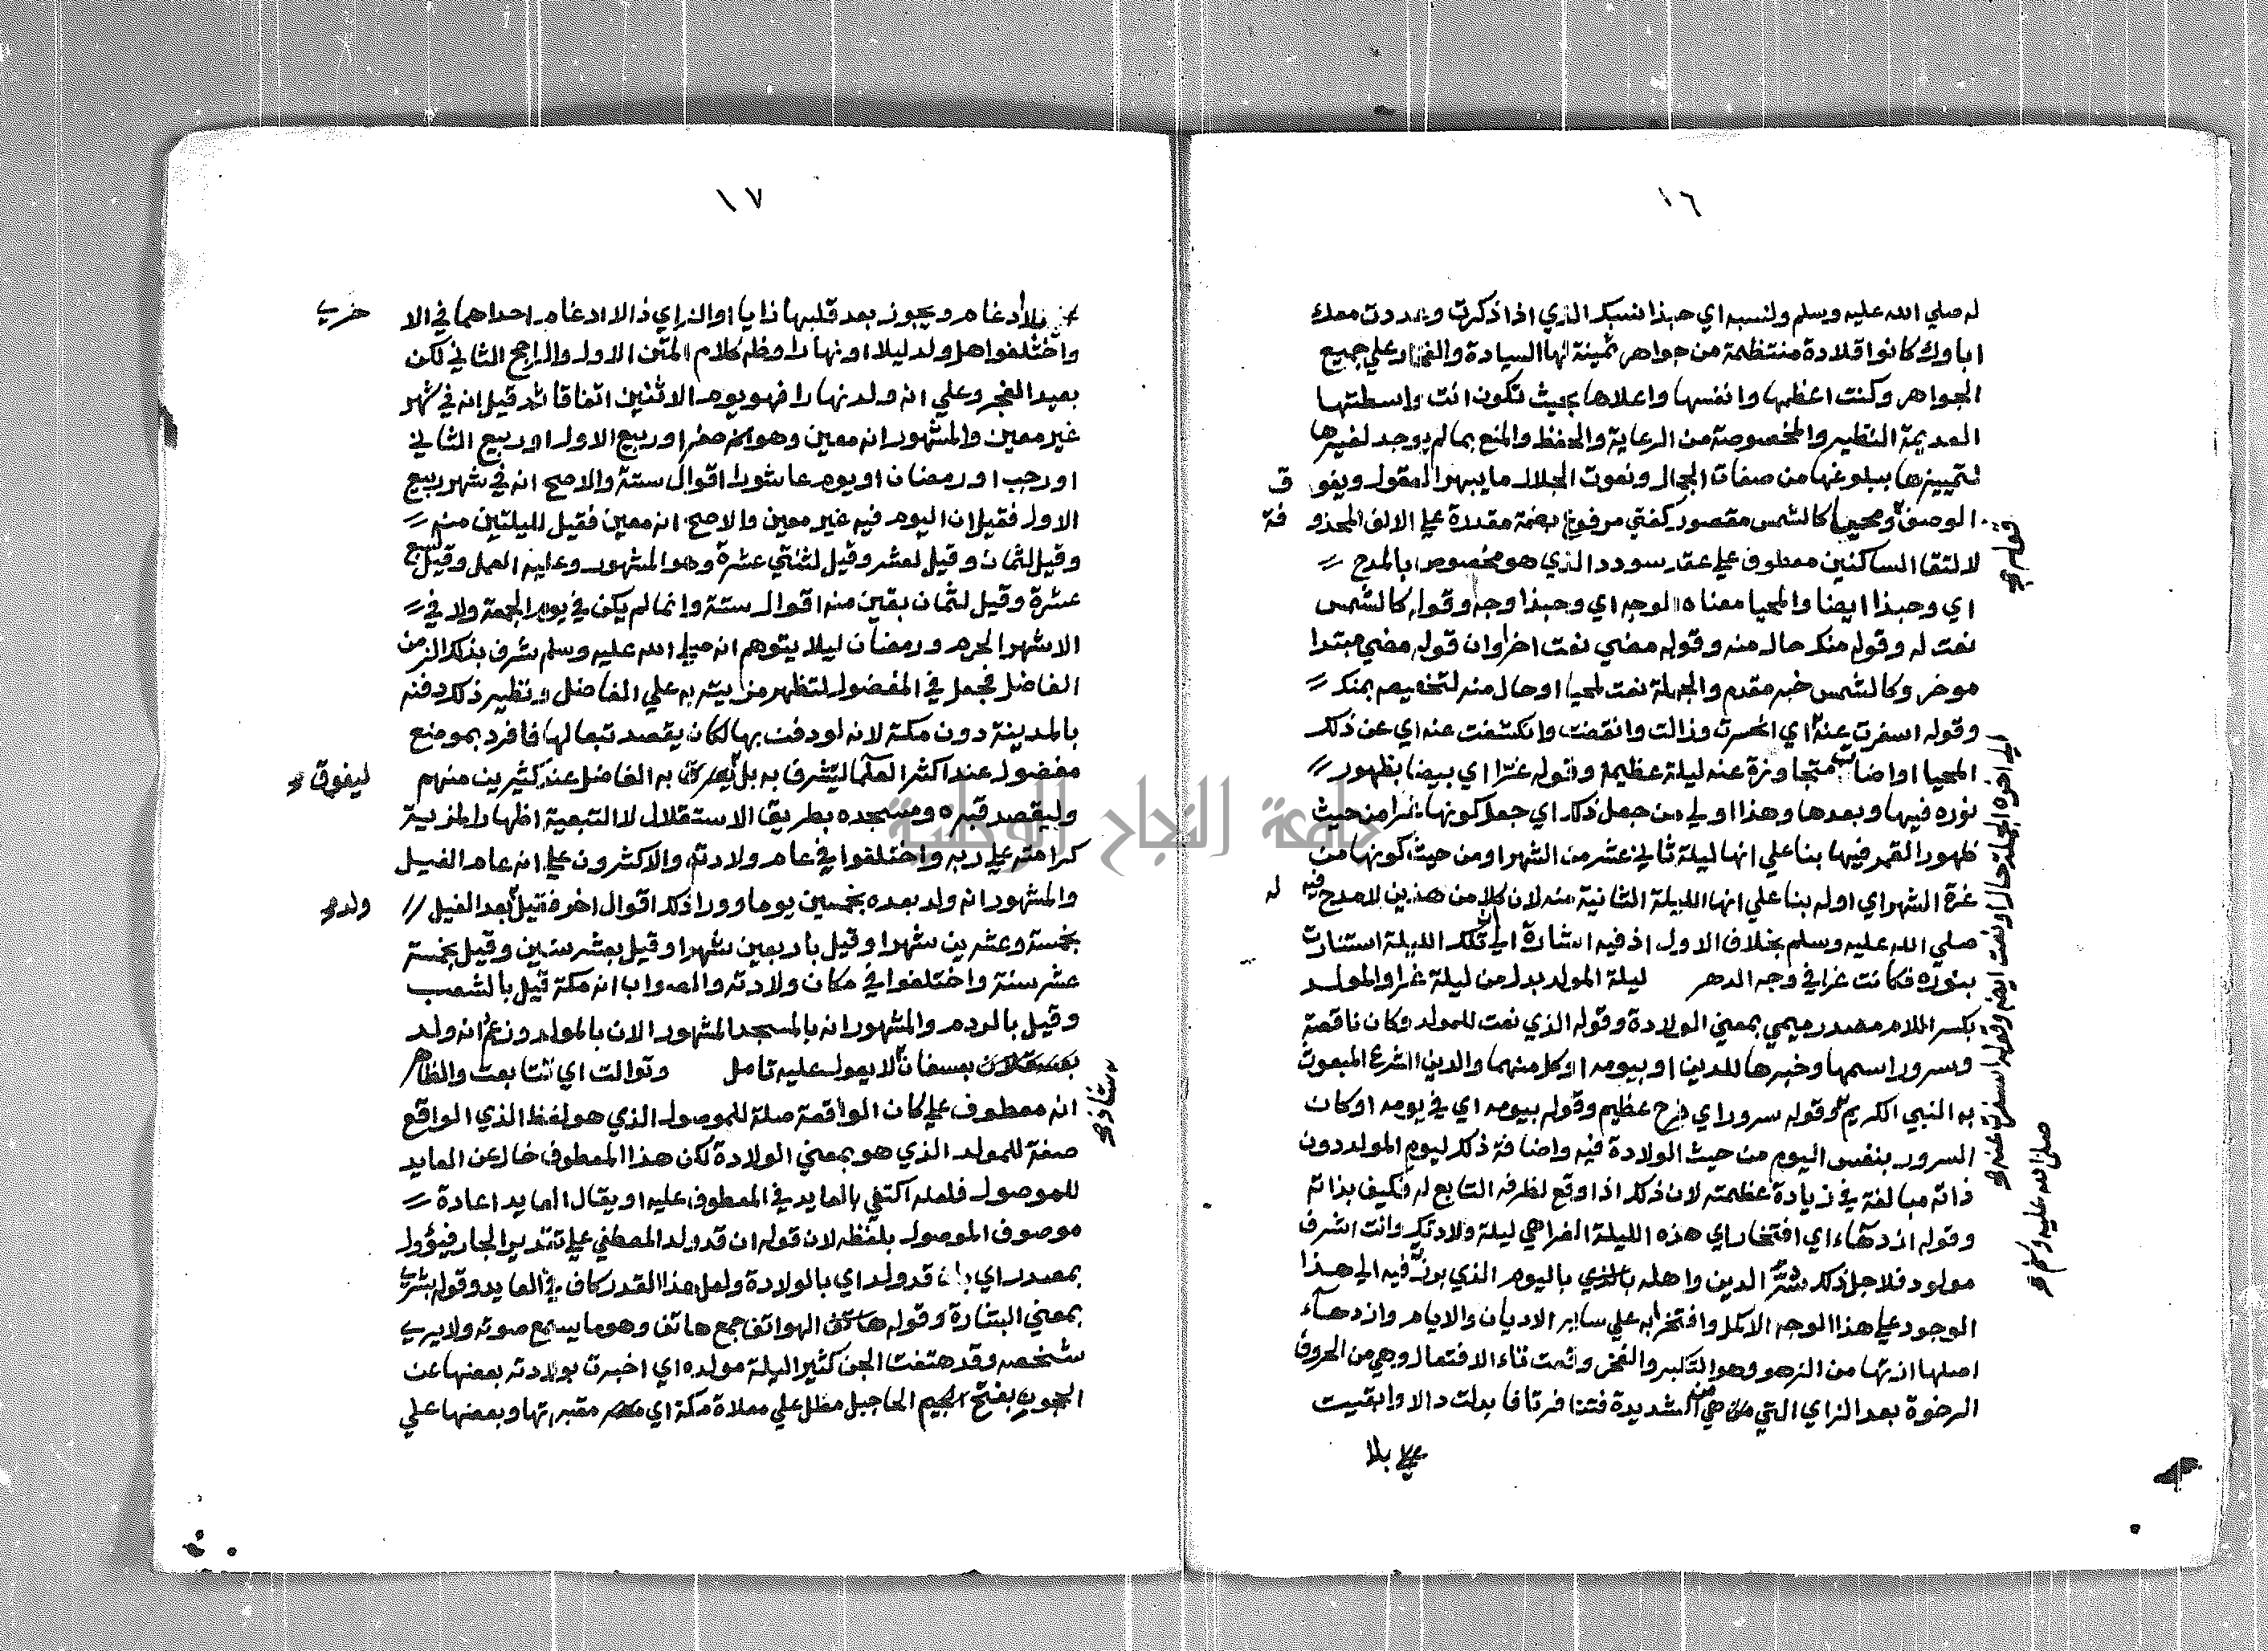 ١٦
له صلي الله عليه وسلم ولنسبه اي حبذا نسبك الذي اذا ذكرت وعددت معك
اباوك كانوا قلادة منتظمة من جواهر ثمينة لها السيادة والفخار علي جميع
الجواهر وكنت اعظمها وانفسها واعلاها بحيث تكون انت واسطتها
العديمة النظير والمخصوصة من الرعاية والحفظ والمنع بما لم يوجد لغيرها
لتمييزها ببلوغها من صفات الجمال ونعوت الجلال ما يبهر العقول ويفوق
الوصف قوله ومحيا كالشمس مقصور كفتي مرفوع بضمة مقدرة علي الالف المحذوفة
لالتقا الساكنين معطوف علي عقد سودد الذي هو مخصوص بالمدح
اي وحبذا ايضا والمحيا معناه الوجه اي وحبذا وجه وقوله كالشمس
نعت له وقوله منك حال منه وقوله مضي نعت اخر او ان قوله مضي مبتدا
موخر وكالشمس خبر مقدم والجملة نعت لمحيا او حال منه لتخصيصه بمنك
وقوله اسفرت عنه اي انحسرت وزالت وانقضت وانكشفت عنه اي عن ذلك
المحيا او اضات متجاوزة عنه ليلة عظيمة وقوله غرا اي بيضا بظهور
نوره فيها وبعدها وهذا اولي من جعل ذلك اي جعل كونها غرا من حيث
ظهور القمر فيها بنا علي انها ليلة ثاني عشر من الشهر او من حيث كونها من
غرة الشهر اي اوله بنا علي انها الليلة الثانية منه لان كلا من هذين لا مدح فيه له
صلي الله عليه وسلم بخلاف الاول اذ فيه اشارة الي ان تلك الليلة استنارت
بنوره فكانت غرا في وجه الدهر ليلة المولد بدل من ليلة غرا والمولد
بكسر اللام مصدر ميمي بمعني الولادة وقوله الذي نعت للمولد وكان ناقصة
وسرور اسمها وخبرها للدين او بيومه او كل منهما والدين الشرع المبعوث
به النبي الكريم وقوله سرور اي فرح عظيم وقوله بيومه اي في يومه او كان
السرور بنفس اليوم من حيث الولادة فيه واضافة ذلك ليوم المولد دون
ذاته مبالغة في زيادة عظمته لان ذلك اذا وقع لظرفه التابع له فكيف بذاته
وقوله ازدهاء اي افتخار اي هذه الليلة الغرا هي ليلة ولادتك وانت اشرف
مولود فلاجل ذلك سر الدين واهله باليوم الذي برزت فيه الي هذا
الوجود علي هذا الوجه الاكمل وافتخرا به علي ساير الاديان والايام وازدهاء
اصلها ازتها من الزهو وهو التكبر والفخر وقعت تاء الافتعال وهي من الحروف
الرخوة بعد الزاي التي هي من الشديدة فتنافرتا فابدلت دالا وابقيت
علي بلا
قوله
الي اخره الجملة حال او نعت ايضا وقوله اسفرت عنه
صلي الله عليه وسلم
١٧
بلا ادغام ويجوز بعد قلبها ذايا او الزاي ذالا ادغام احداهما في الاخري
واختلفوا هل ولد ليلا او نهارا وظ كلام المتن الاول والراجح الثاني لكن
بعيد الفجر وعلي انه ولد نهارا فهو يوم الاثنين اتفاقا ثم قيل انه في شهر
غير معين والمشهور انه معين وهو اخر صفر او ربيع الاول او ربيع الثاني
او رجب او رمضان او يوم عاشورا اقوال ستة والاصح انه في شهر ربيع
الاول فقيل ان اليوم فيه غير معين والاصح انه معين فقيل لليلتين منه
وقيل لثمان وقيل لعشر وقيل لثنتي عشرة وهو المشهور وعليه العمل وقيل لسبع
عشرة وقيل لثمان بقين منه اقوال ستة وانما لم يكن في يوم الجمعة ولا في
الاشهر الحرم ورمضان ليلا يتوهم انه صلي الله عليه وسلم شرف بذلك الزمن
الفاضل فجعل في المفضول لتظهر مزايته به علي الفاضل ونظير ذلك دفنه
بالمدينة دون مكة لانه لو دفن بها لكان يقصد تبعا لها فافرد بموضع
مفضول عند اكثر العلما ليتشرف به بل ليفوق به الفاضل عند كثيرين منهم
وليقصد قبره ومسجده بطريق الاستقلال لا التبعية اظهارا لمزية
كرامته علي ربه واختلفوا في عام ولادته والاكثرون علي انه عام الفيل
والمشهور انه ولد بعده بخمسين يوما وورا ذلك اقوال اخر فقيل ولد بعد الفيل
بخمسة وعشرين شهرا وقيل باربعين شهرا وقيل بعشر سنين وقيل بخمسة
عشر سنة واختلفوا في مكان ولادته والصواب انه مكة قيل بالشعب
وقيل بالردم والمشهور انه بالمسجد المشهور الان بالمولد وزعم انه ولد
بعسفان شاذ لا يعول عليه تامل وتوالت اي تتابعت والظاهر
انه معطوف علي كان الواقعة صلة للموصول الذي هو لفظ الذي الواقع
صفة للمولد الذي هو بمعني الولادة لكن هذا المعطوف خال عن العايد
للموصول فلعله اكتفي بالعايد في المعطوف عليه او يقال العايد اعادة
موصوف الموصول بلفظه لان قوله ان قد ولد المصطفي علي تقدير الجار فيؤول
بمصدر اي بان قد ولد اي بالولادة ولعل هذا القدر كاف في العايد وقوله بشري
بمعني البشارة وقوله الهواتف جمع هاتف وهو ما يسمع صوته ولا يري
شخصه وقد هتفت الجن كثيرا ليلة مولده اي اخبرت بولادته بعضها عن
الحجون بفتح الجيم الحا جبل مطل علي معلاة مكة اي مقبرتها وبعضها علي
جامعة النجاح الوطنية